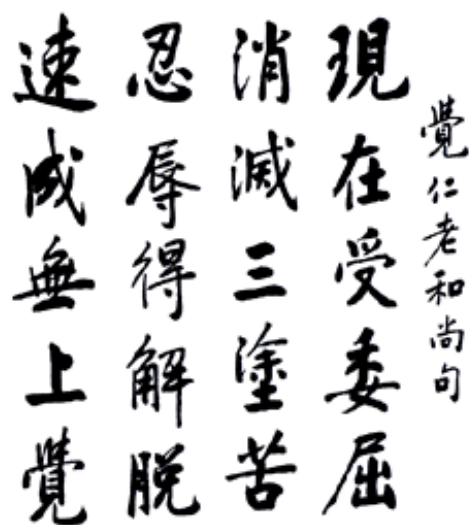 覺仁老和尚句
現在受委屈
消滅三塗苦
忍辱得解脫
速成無上覺